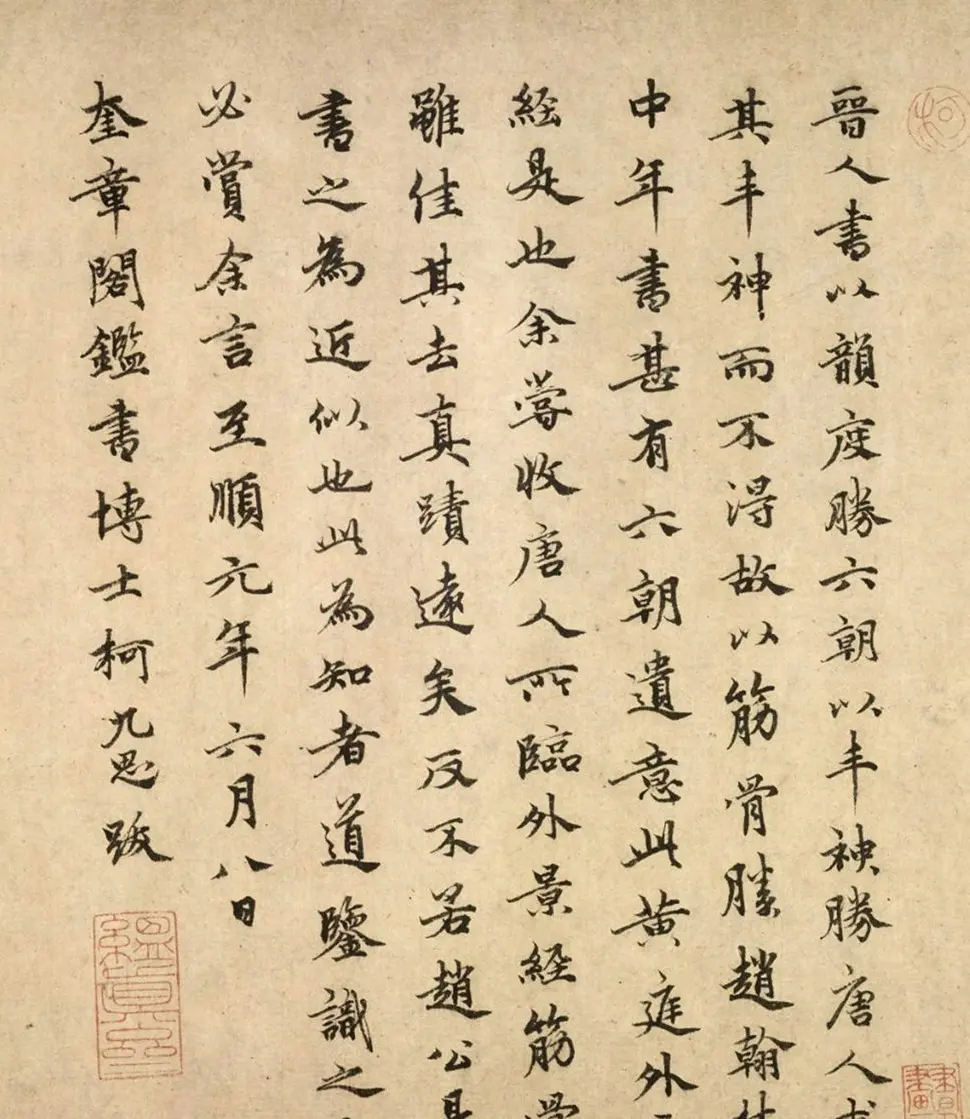 晉人書以韻度勝六朝以丰神勝唐人
其丰神而不得故以筋骨勝趙翰
中年書甚有六朝遺意此黄庭外
経是也余嘗收唐人所臨外景經筋
雖佳其去真蹟遠矣反不若趙公
書之為近似也此為知者道鑒識之
必賞余言至順元年六月八日
奎章閣鑑書博士柯九思跋
柯
緼真